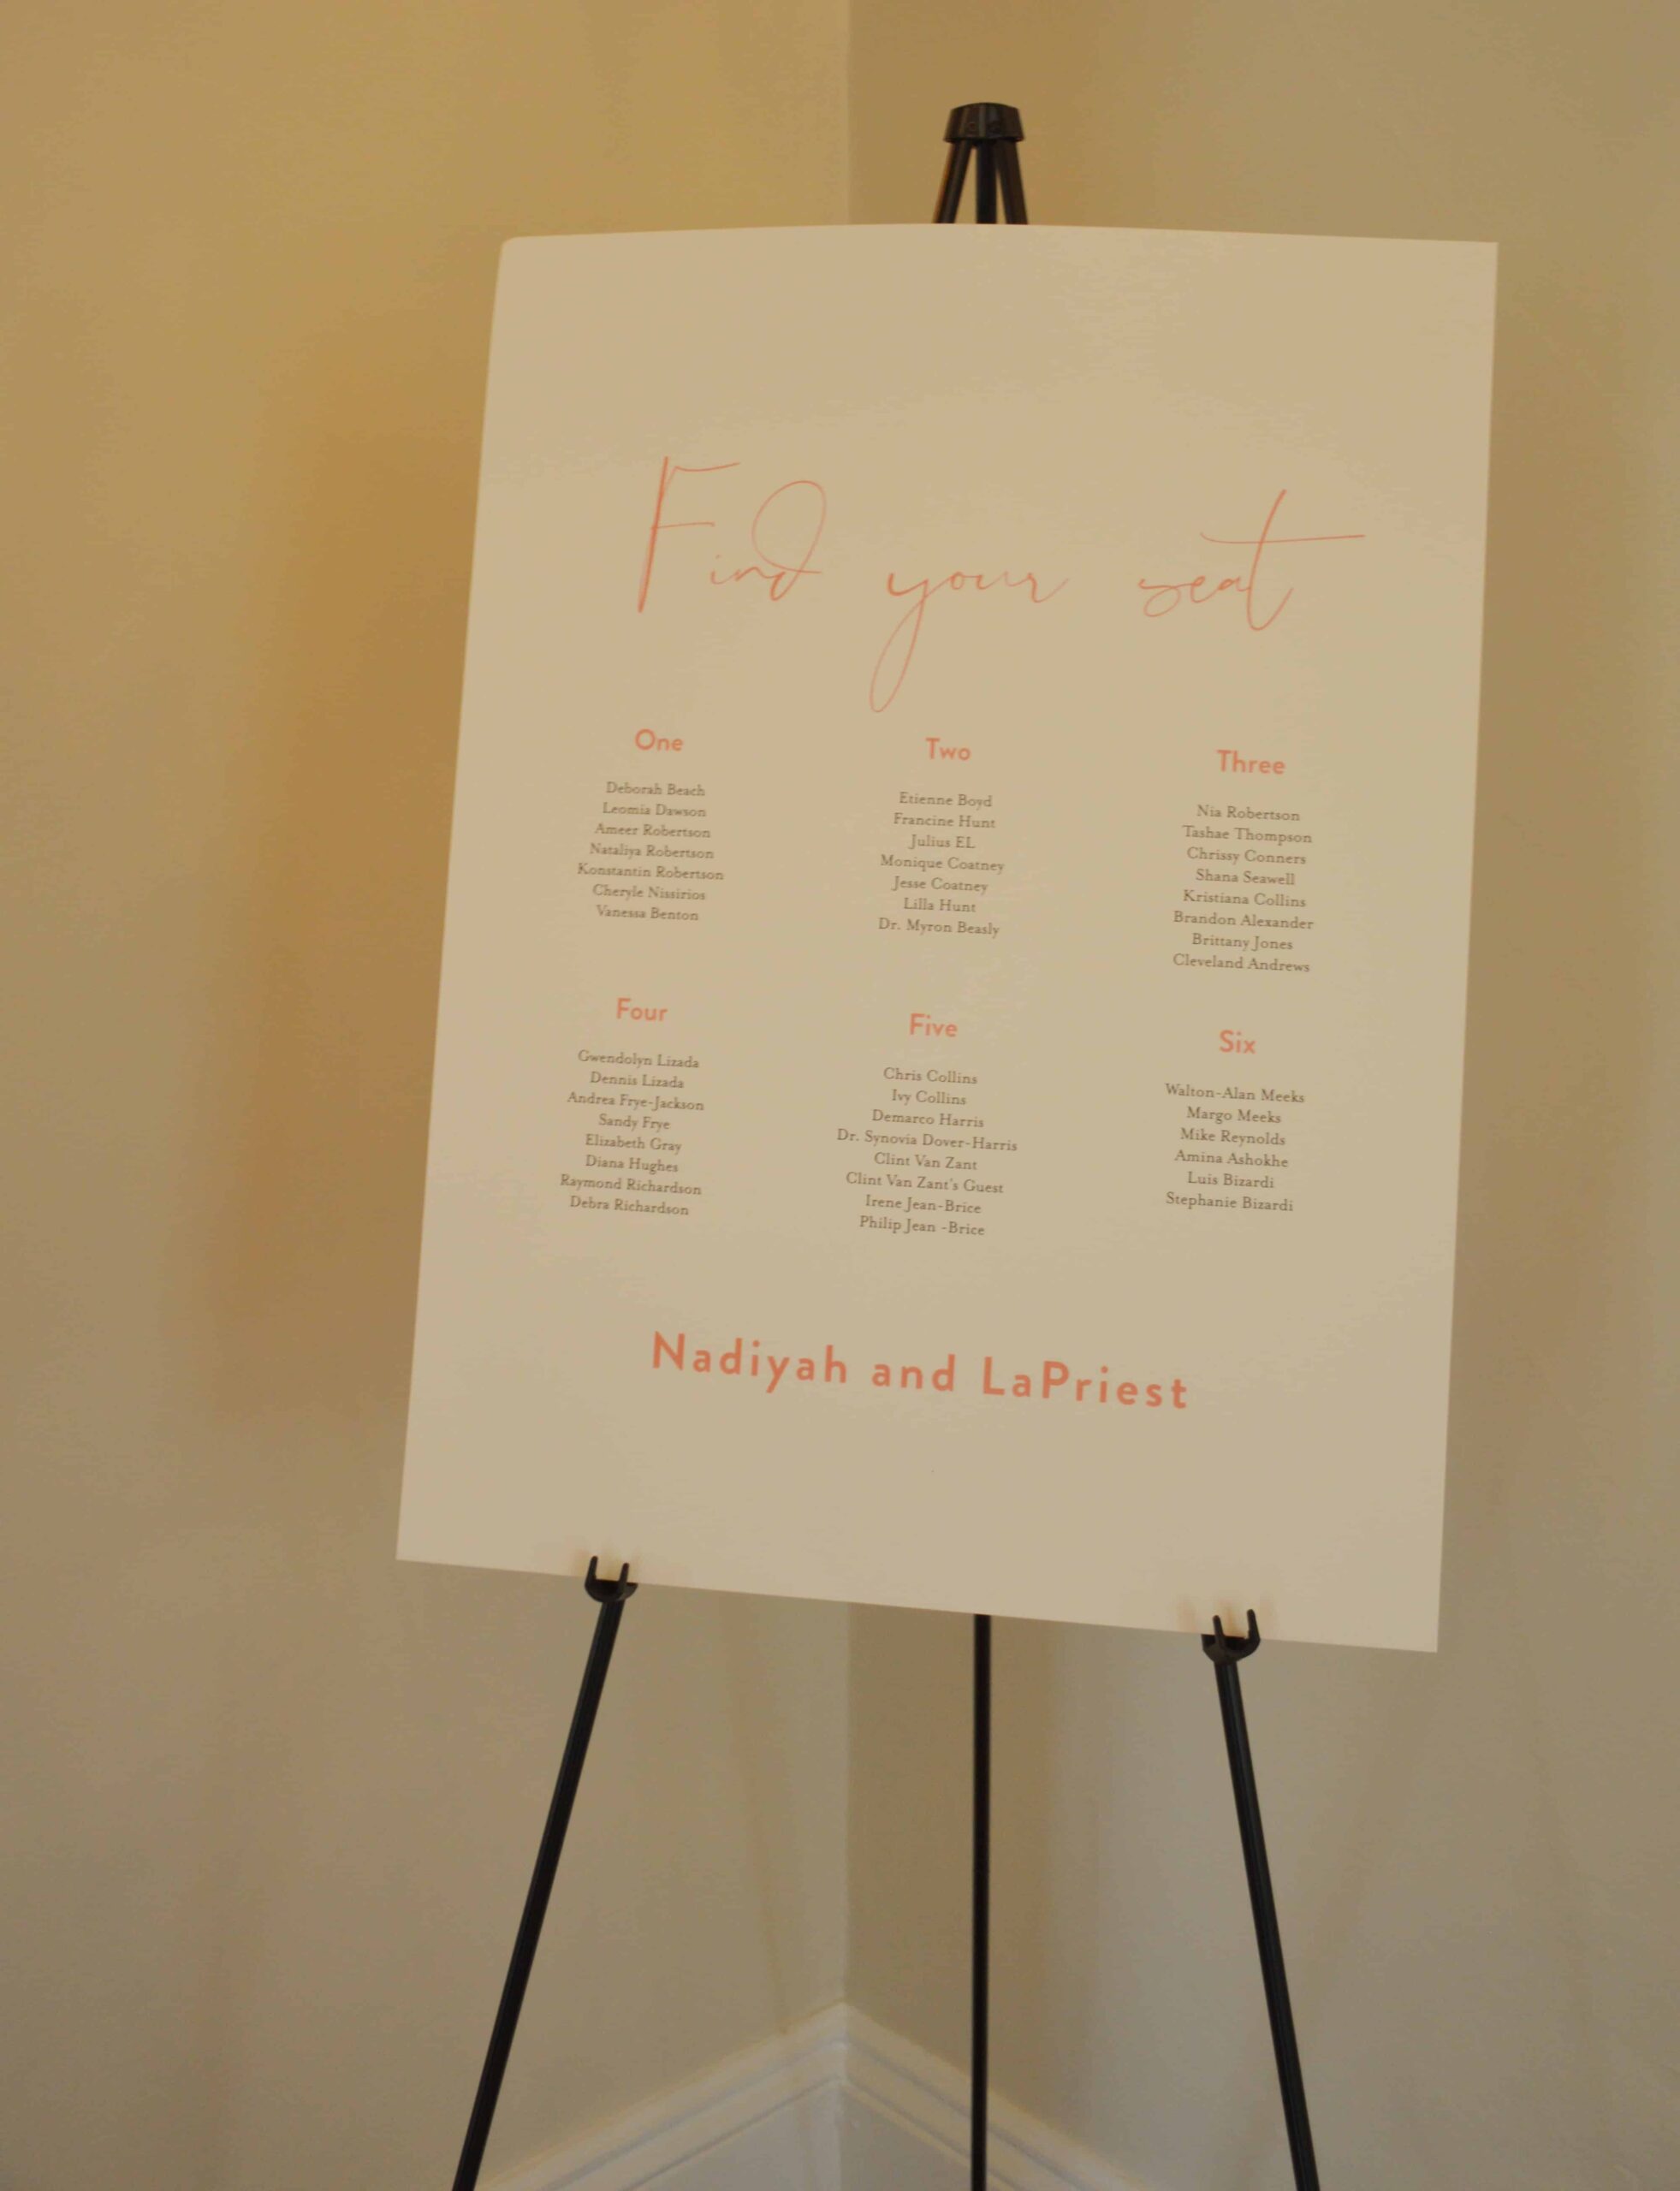 Find your seat
One
Deborah Beach
Leomia Dawson
Ameer Robertson
Nataliya Robertson
Konstantin Robertson
Cheryle Nissirios
Vanessa Benton
Two
Etienne Boyd
Francine Hunt
Julius EL
Monique Coatney
Jesse Coatney
Lilla Hunt
Dr. Myron Beasly
Three
Nia Robertson
Tashae Thompson
Chrissy Conners
Shana Seawell
Kristiana Collins
Brandon Alexander
Brittany Jones
Cleveland Andrews
Four
Gwendolyn Lizada
Dennis Lizada
Andrea Frye-Jackson
Sandy Frye
Elizabeth Gray
Diana Hughes
Raymond Richardson
Debra Richardson
Five
Chris Collins
Ivy Collins
Demarco Harris
Dr. Synovia Dover-Harris
Clint Van Zant
Clint Van Zant's Guest
Irene Jean-Brice
Philip Jean -Brice
Six
Walton-Alan Meeks
Margo Meeks
Mike Reynolds
Amina Ashokhe
Luis Bizardi
Stephanie Bizardi
Nadiyah and LaPriest